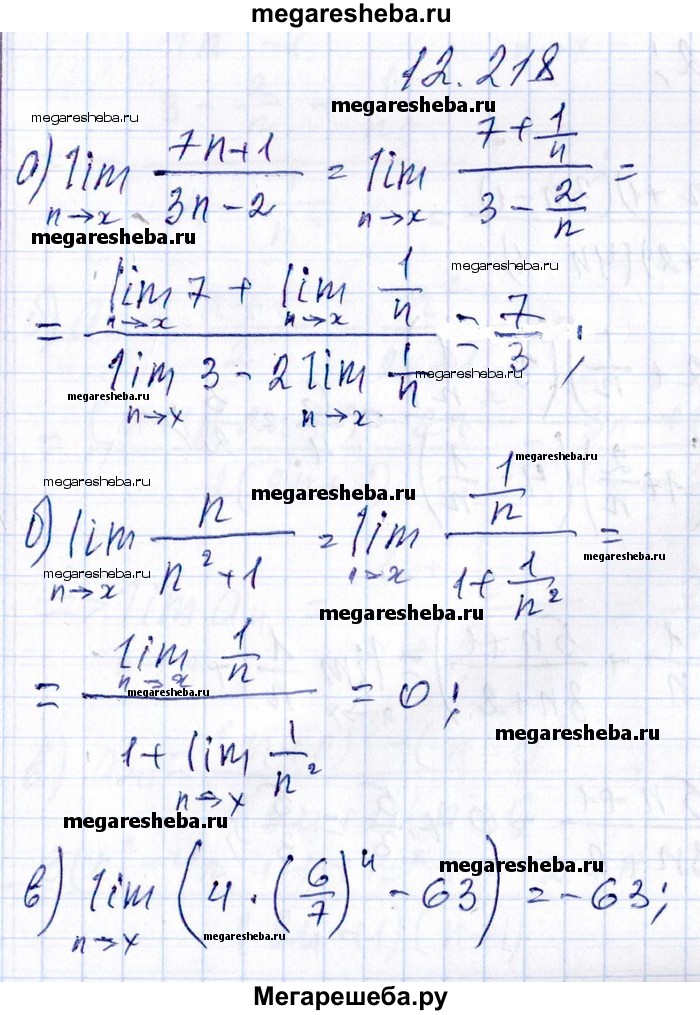 megaresheba.ru
12.218
megaresheba.ru
megaresheba.ru
а) lim n→x (7n+1)/(3n-2) = lim n→x (7+1/n)/(3-2/n) =
megaresheba.ru
megaresheba.ru
= (lim n→x 7 + lim n→x 1/n)/(lim n→x 3 - 2 lim n→x 1/n) = 7/3;
megaresheba.ru
megaresheba.ru
megaresheba.ru
megaresheba.ru
megaresheba.ru
б) lim n→x n/(n²+1) = lim n→x (1/n)/(1+1/n²) =
megaresheba.ru
megaresheba.ru
megaresheba.ru
= (lim n→x 1/n)/(1+lim n→x 1/n²) = 0;
megaresheba.ru
megaresheba.ru
megaresheba.ru
в) lim n→x (4·(6/7)ⁿ - 63) = -63;
megaresheba.ru
megaresheba.ru
Мегарешеба.ру